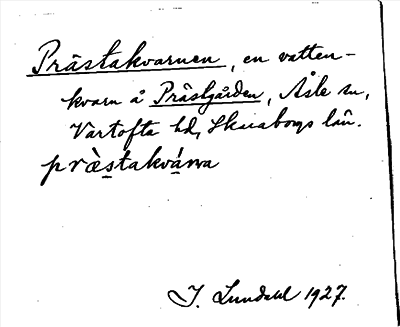 Prästakvarnen, en vatten-
kvarn å Prästgården, Åsle sn,
Vartofta hd, Skaraborgs län.
præ̀stakvárna
J. Lundahl 1927.